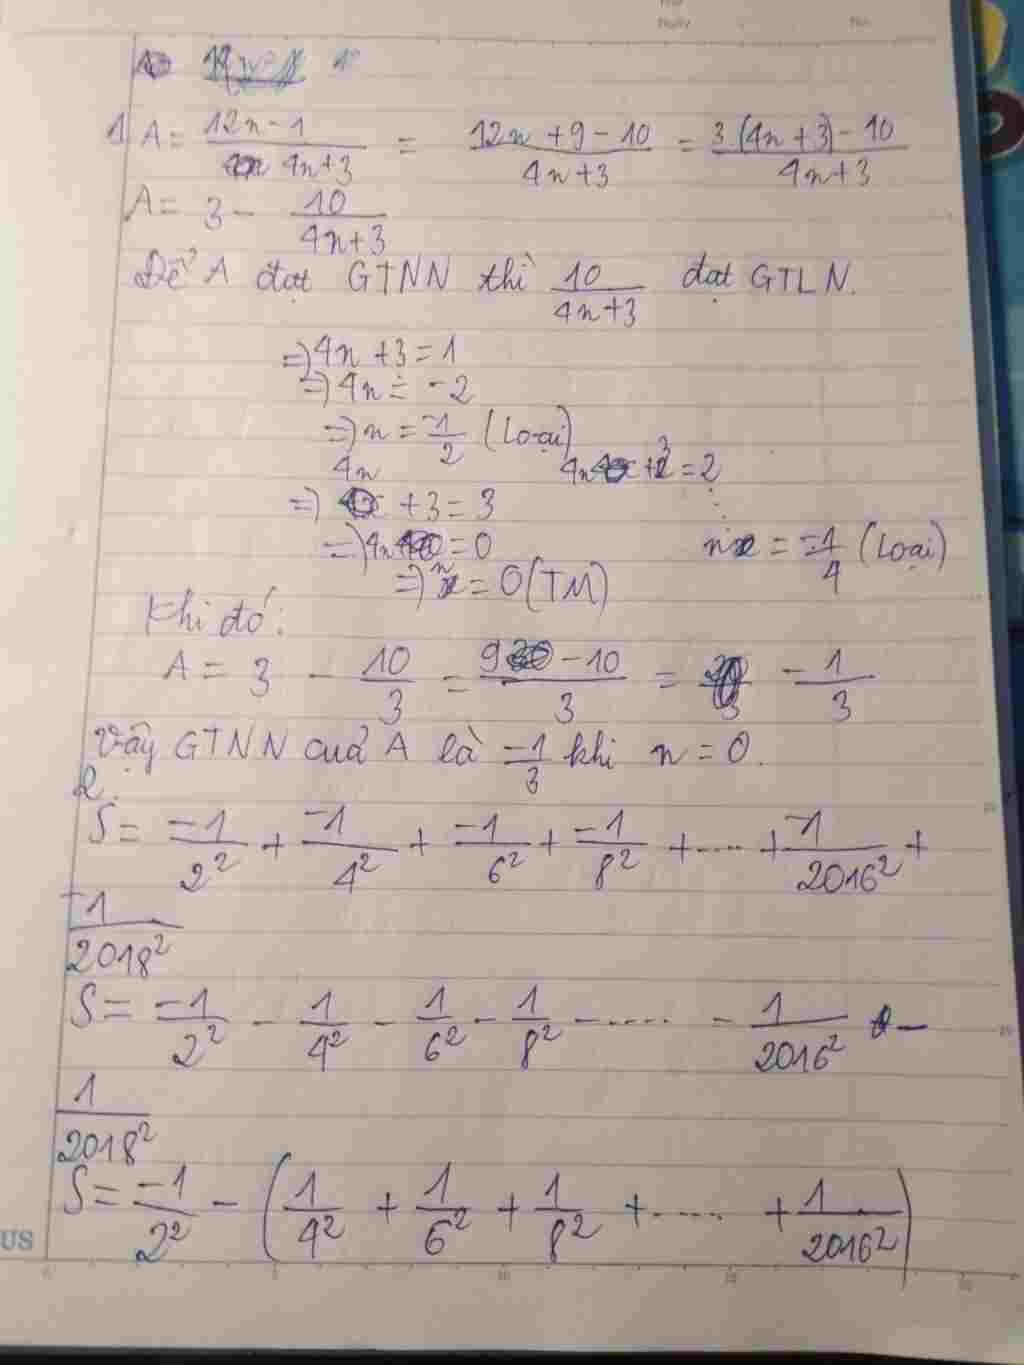 1. A = (12n - 1)/(4n+3) = (12n + 9 - 10)/(4n+3) = (3.(4n+3) - 10)/(4n+3)
A = 3 - 10/(4n+3)
Để A đạt GTNN thì 10/(4n+3) đạt GTLN.
=> 4n + 3 = 1
=> 4n = -2
=> n = -1/2 (Loại)
4n + 3 = 2
=> 4n + 3 = 3
=> 4n = 0
n = -1/4 (Loại)
=> n = 0 (TM)
Khi đó:
A = 3 - 10/3 = (9 - 10)/3 = -1/3
Vậy GTNN của A là -1/3 khi n = 0.
2.
S = -1/2² + -1/4² + -1/6² + -1/8² + .... + -1/2016² +
-1/2018²
S = -1/2² - 1/4² - 1/6² - 1/8² - ..... - 1/2016² -
1/2018²
S = -1/2² - (1/4² + 1/6² + 1/8² + ..... + 1/2016²)
US